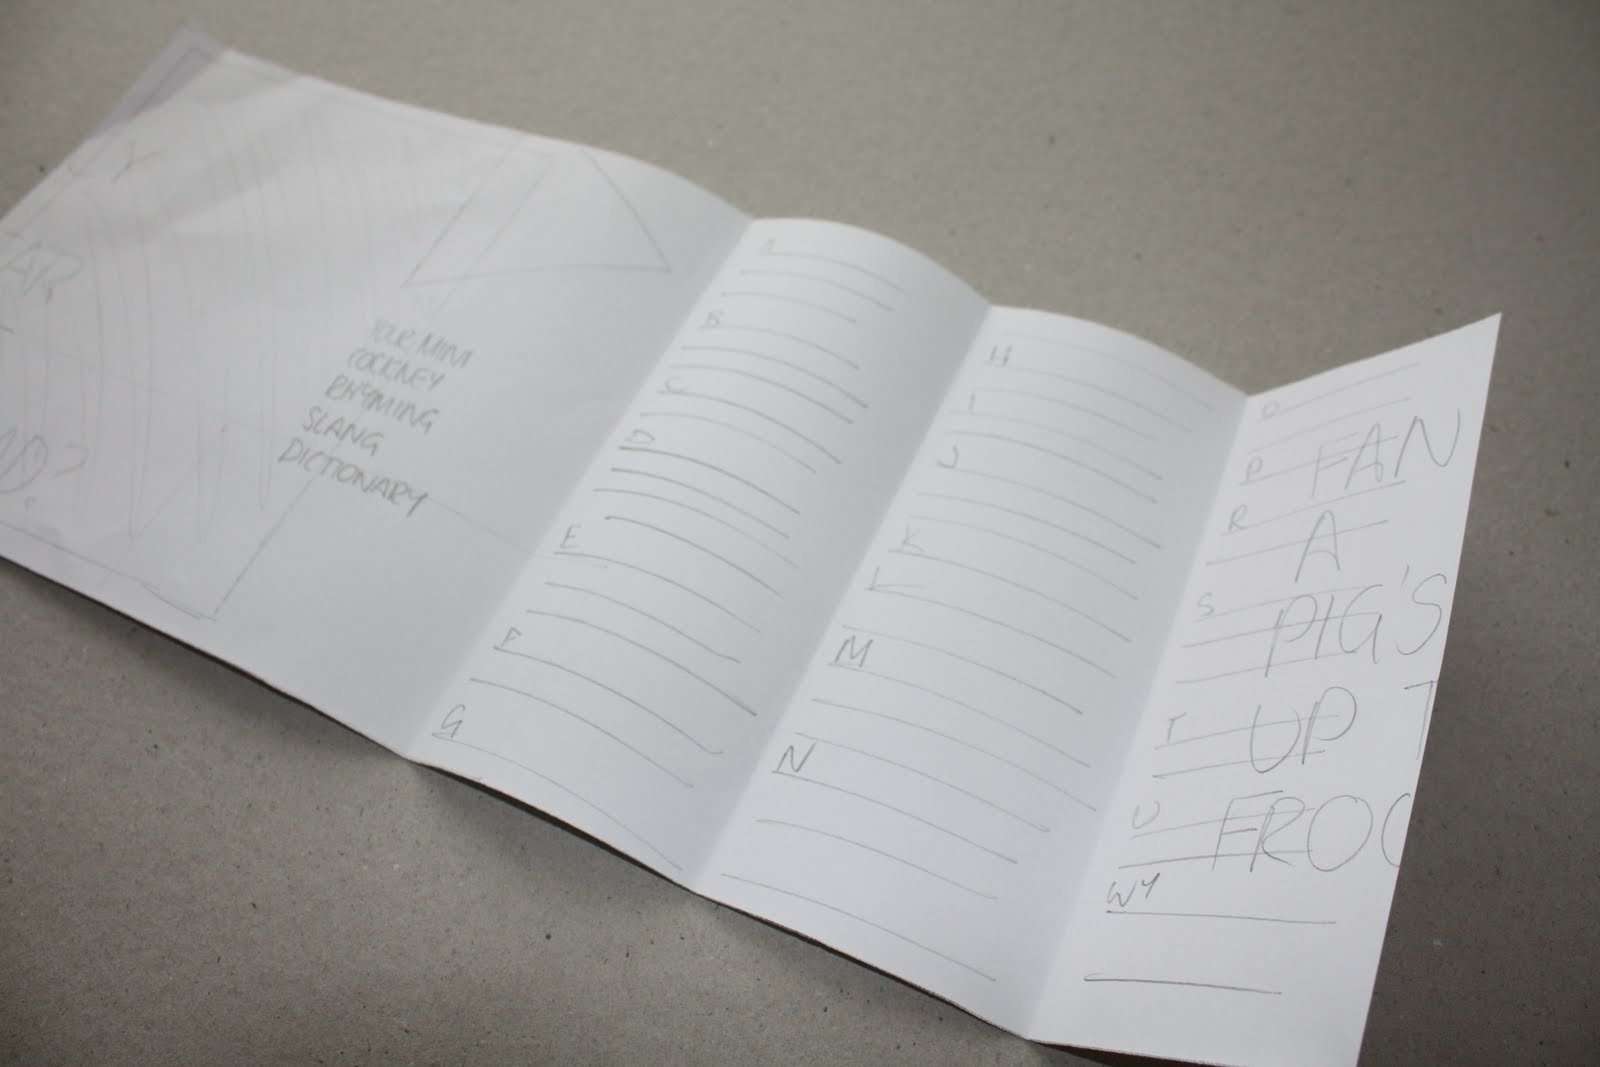 YOUR MINI
COCKNEY
RHYMING
SLANG
DICTIONARY
A
B
C
D
E
F
G
H
I
J
K
L
M
N
O
P
R
S
T
U
WY
FAN
A
PIG'S
UP T
FROG